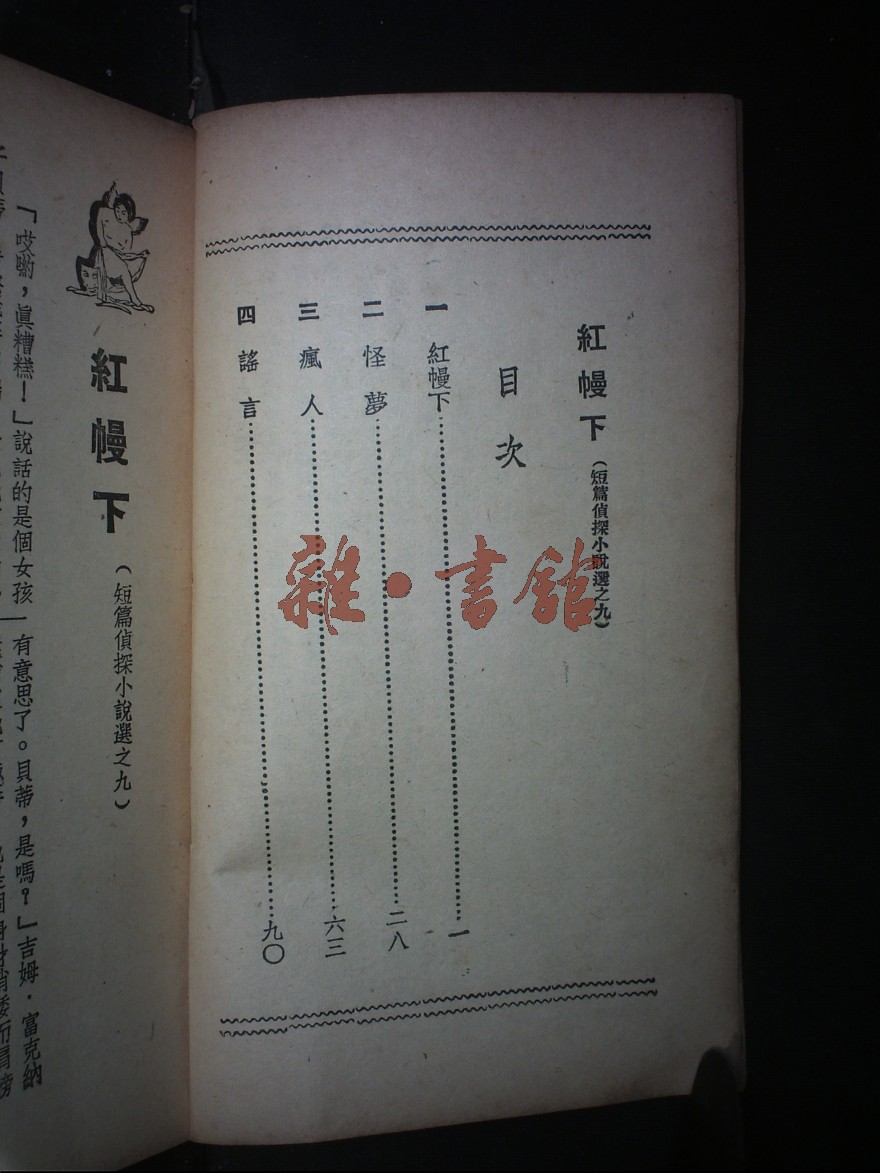 紅幔下(短篇偵探小說選之九)
目次
一 紅幔下……一
二 怪夢……二八
三 瘋人……六三
四 謠言……九〇
雜·書館
紅幔下
(短篇偵探小說選之九)
「哎喲,真糟糕!」說話的是個女孩
有意思了。貝蒂,是嗎?」吉姆·富克納